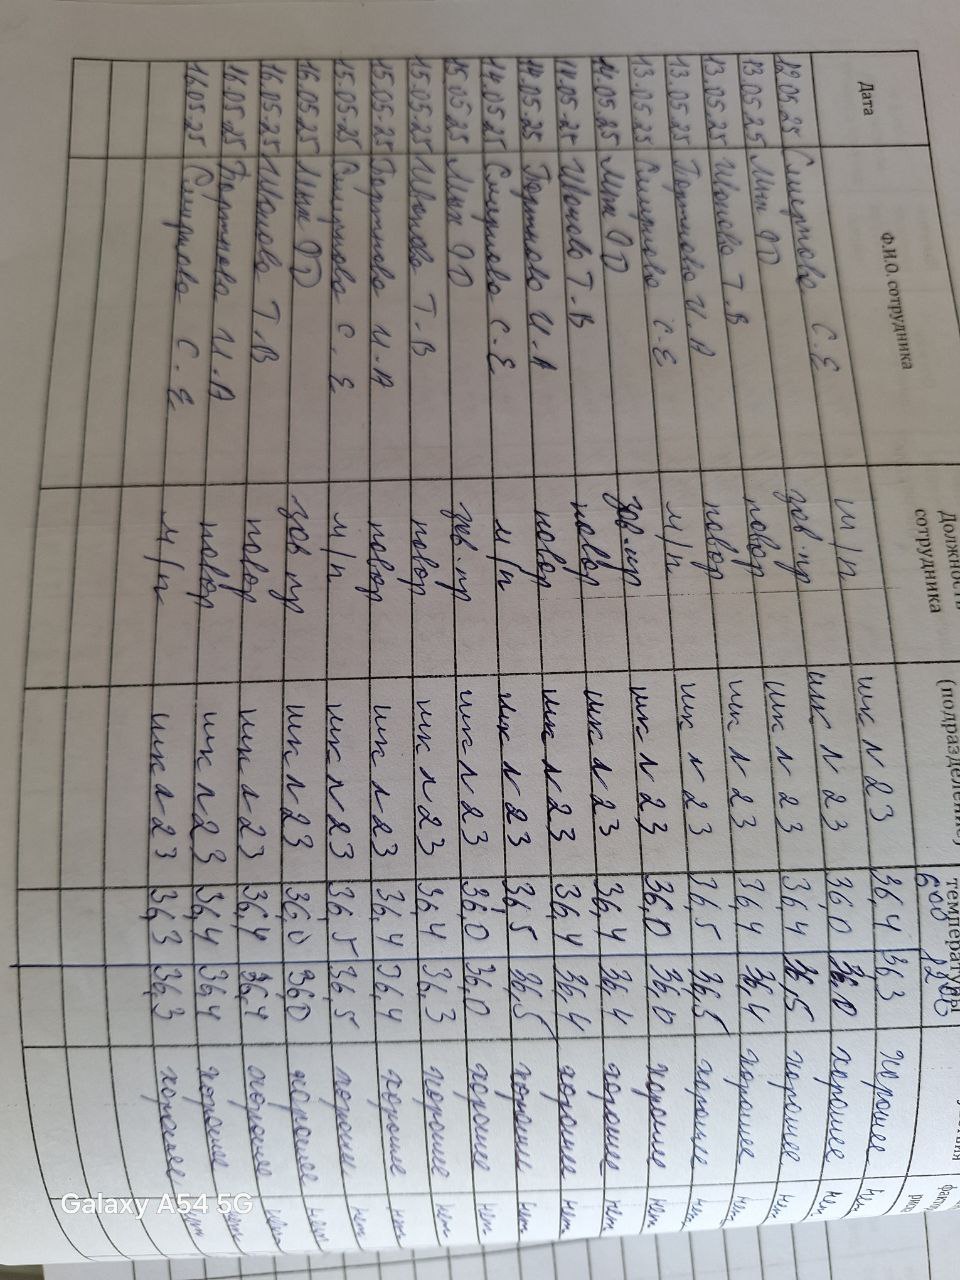 Дата Ф.И.О. сотрудника Должность сотрудника (подразделение) температуры 6 00 12 00
12.05.25 Смирнова С.Е м/п шк N 23 36,4 36,3 хорошее нет
13.05.25 Мын зав.пр шк N 23 36,0 36,0 хорошее нет
13.05.25 Иванова Т.В повар шк N 23 36,4 36,5 хорошее нет
13.05.25 Портнова И.А повар шк N 23 36,4 36,4 хорошее нет
13.05.25 Смирнова С.Е м/п шк N 23 36,5 36,5 хорошее нет
14.05.25 зав.пр шк N 23 36,0 36,0 хорошее нет
14.05.25 Иванова Т.В повар шк N 23 36,4 36,4 хорошее нет
14.05.25 Портнова И.А повар шк N 23 36,4 36,4 хорошее нет
14.05.25 Смирнова С.Е м/п шк N 23 36,5 36,5 хорошее нет
15.05.25 зав.пр шк N 23 36,0 36,0 хорошее нет
15.05.25 Иванова Т.В повар шк N 23 36,4 36,3 хорошее нет
15.05.25 Портнова И.А повар шк N 23 36,4 36,4 хорошее нет
15.05.25 Смирнова С.Е м/п шк N 23 36,5 36,5 хорошее нет
16.05.25 зав пр шк N 23 36,0 36,0 хорошее нет
16.05.25 Иванова Т.В повар шк N 23 36,4 36,4 хорошее нет
16.05.25 Портнова И.А повар шк N 23 36,4 36,4 хорошее нет
16.05.25 Смирнова С.Е м/п шк N 23 36,3 36,3 хорошее нет
Galaxy A54 5G